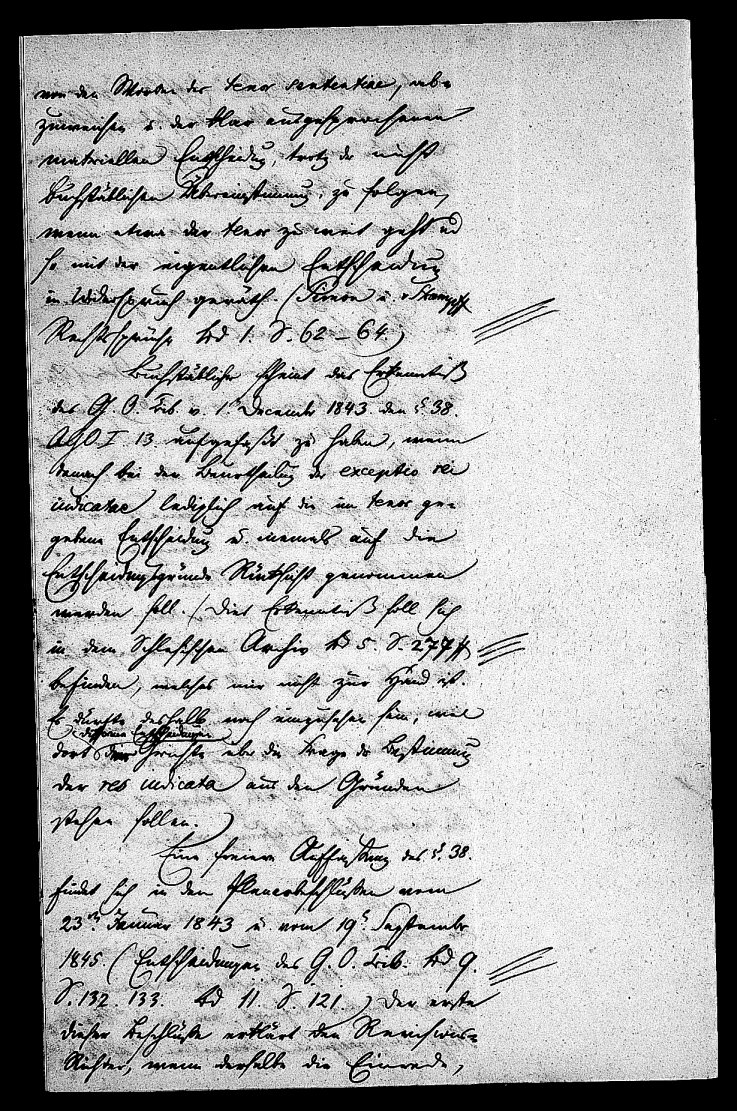 von den Worten des tenor sententiae, abzu-
zuweichen u. der klar ausgesprochenen
materiellen Entscheidung, trotz der nicht
buchstäblichen Übereinstimmung, zu folgen,
wenn etwa der tenor zu weit geht und
so mit der eigentlichen Entscheidung
in Widerspruch geräth. (Simon u. v Strampff
Rechtssprüche Bd 1. S. 62 – 64.)
Buchstäblicher scheint das Erkenntniß
des G. O. Trib. v. 1. December 1843 den §. 38.
A.G.O. I. 13 aufgefaßt zu haben, wenn
danach bei der Beurtheilung der exceptio rei
iudicatae lediglich auf die im tenor ge-
gebene Entscheidung u. niemals auf die
Entscheidungsgründe Rücksicht genommen
werden soll. (Dies Erkenntniß soll sich
in dem Schlesischen Archiv Bd 5. S. 277 ff
befinden, welches mir nicht zur Hand ist.
Es dürfte deshalb noch einzusehen sein, weil
Entscheidungen
dort Gerichte über die Frage der Bestimmung
der res iudicata aus den Gründen
stehen sollen.)
Eine freiere Auffassung des §. 38.
findet sich in den Plenarbeschlüssen vom
23. Januar 1843 u. vom 19. September
1845 (Entscheidungen des G. O. Trib. Bd 9.
S. 132. 133. Bd 11. S. 121.) Der erste
dieser Beschlüsse erklärt den Revisions-
Richter, wenn derselbe die Einrede,